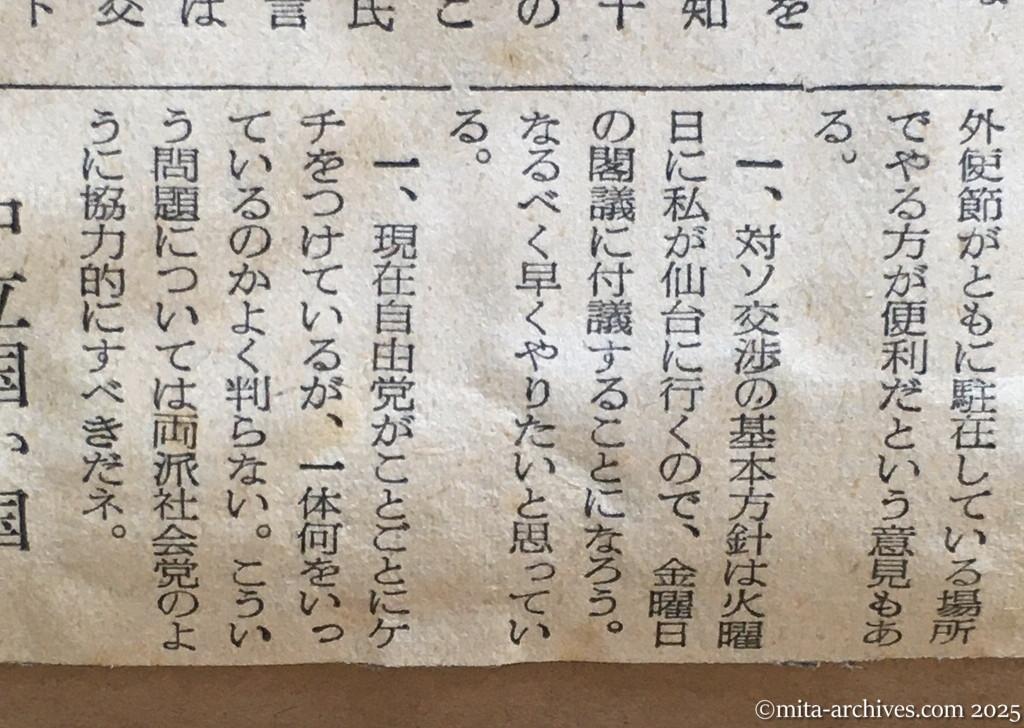 を
知
十
の
と
民
言
は
交
ト
外使節がともに駐在している場所
でやる方が便利だという意見もあ
る。
一、対ソ交渉の基本方針は火曜
日に私が仙台に行くので、金曜日
の閣議に付議することになろう。
なるべく早くやりたいと思ってい
る。
一、現在自由党がことごとにケ
チをつけているが、一体何をいっ
ているのかよく判らない。こうい
う問題については両派社会党のよ
うに協力的にすべきだネ。
立国い国
©mita-archives.com 2025